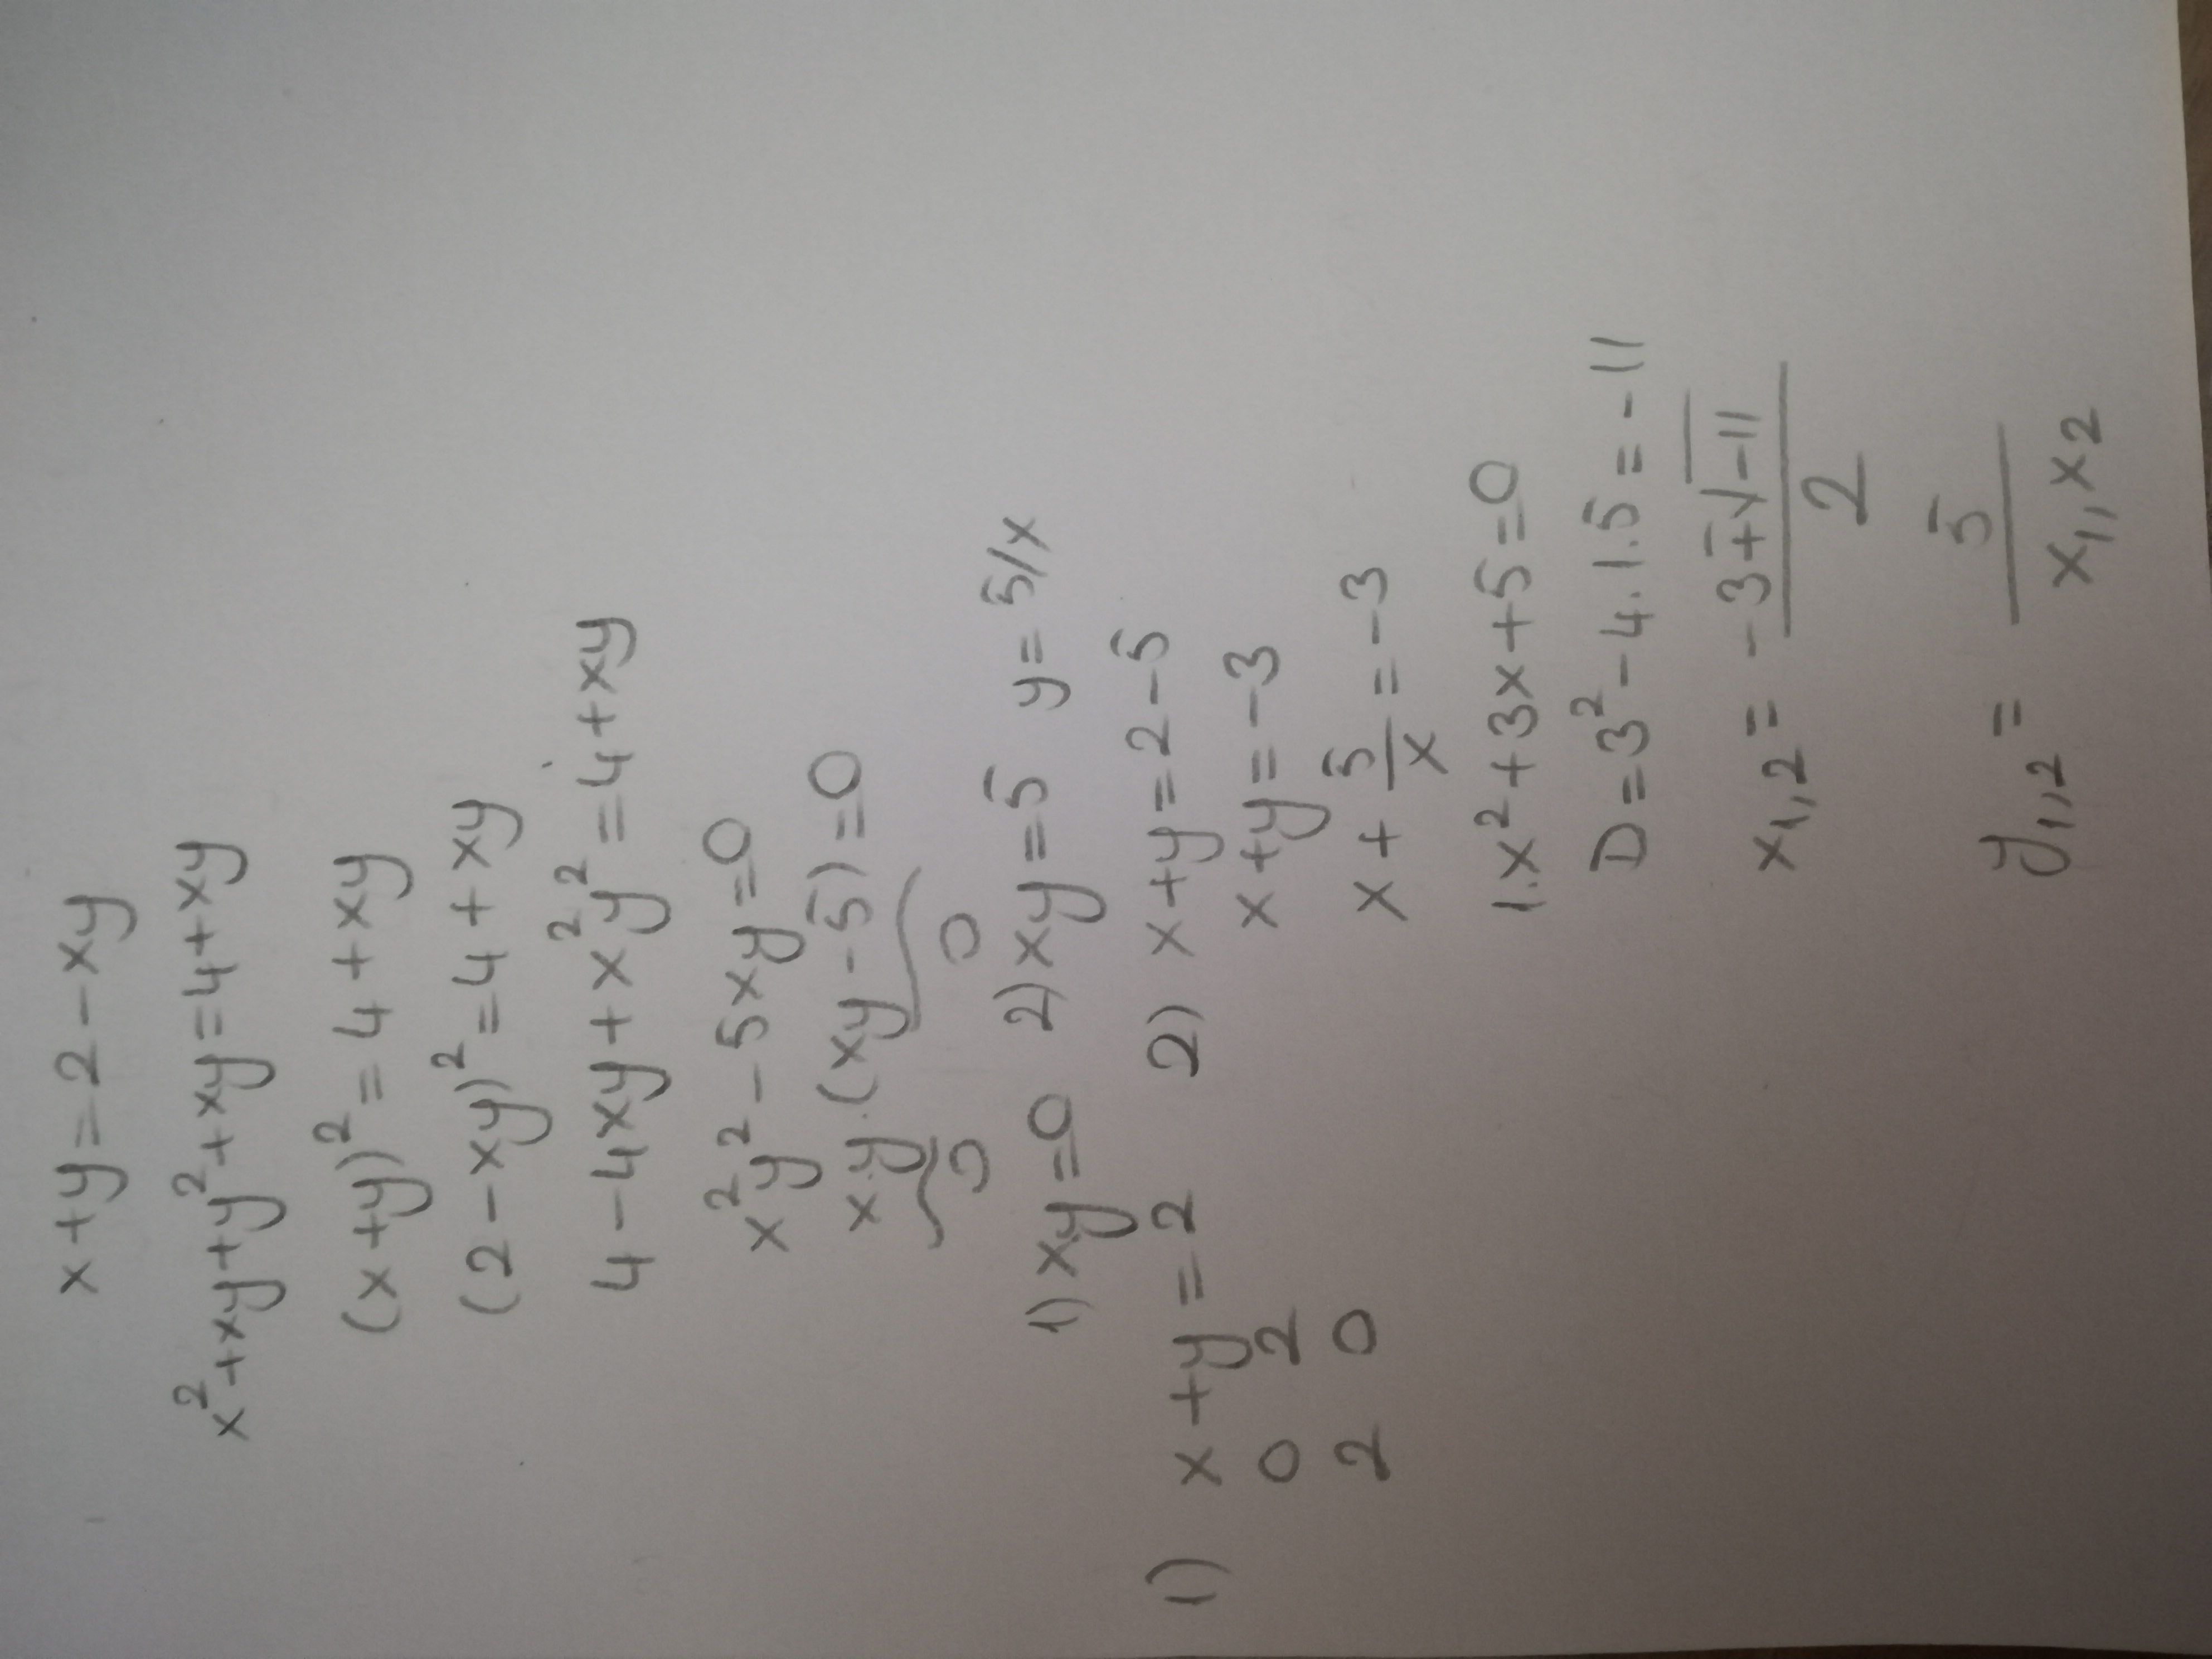 x+y=2-xy
x²+xy+y²+xy=4+xy
(x+y)²=4+xy
(2-xy)²=4+xy
4-4xy+x²y²=4+xy
x²y²-5xy=0
x.y.(xy-5)=0
0 0
1) xy=0 2) xy=5 y=5/x
1) x+y=2 2) x+y=2-5
0 2 x+y=-3
2 0 x+5/x=-3
1.x²+3x+5=0
D=3²-4.1.5=-11
x1,2=(-3±√-11)/2
y1,2=5/(x1,x2)